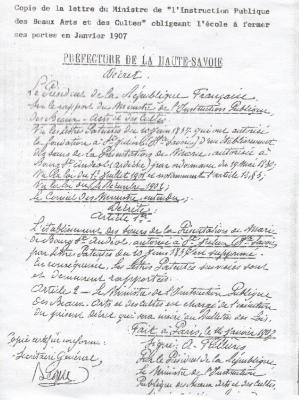 Copie de la lettre du Ministre de "l'Instruction Publique
des Beaux Arts et des Cultes" obligeant l'école à fermer
ses portes en Janvier 1907
PRÉFECTURE DE LA HAUTE-SAVOIE
Décret.
Le Président de la République Française
Sur le rapport du Ministre de l'Instruction Publique,
des Beaux-Arts et des Cultes
Vu les lettres Patentes du 10 juin 1837 qui ont autorisé
la fondation à St Julien (Hte Savoie) d'un établissement
de Sœurs de la Présentation de Marie, autorisée à
Bourg St Andéol (Ardèche) par ordonnance du 29 Mai 1830
Vu la loi du 1er Juillet 1901 et notamment l'article 13 § 3;
Vu la loi du Décembre
Le Conseil des Ministres entendu,
Décrète:
Article 1er
L'établissement des Sœurs de la Présentation de Marie
de Bourg St Andéol, autorisé à St Julien (Hte Savoie)
par lettres Patentes du 10 juin 1837 est supprimé.
En conséquence, les lettres Patentes susvisées sont
et demeurent rapportées.
Article 2 - Le Ministre de l'Instruction Publique
des Beaux-Arts et des Cultes est chargé de l'exécution
du présent décret qui sera inséré au Bulletin des Lois.
Fait à Paris, le 14 janvier 1907
Signé: A. Fallières
Par le Président de la République
Le Ministre de l'Instruction
Publique des Beaux-Arts et des Cultes,
Copie certifiée conforme:
Secrétaire Général,